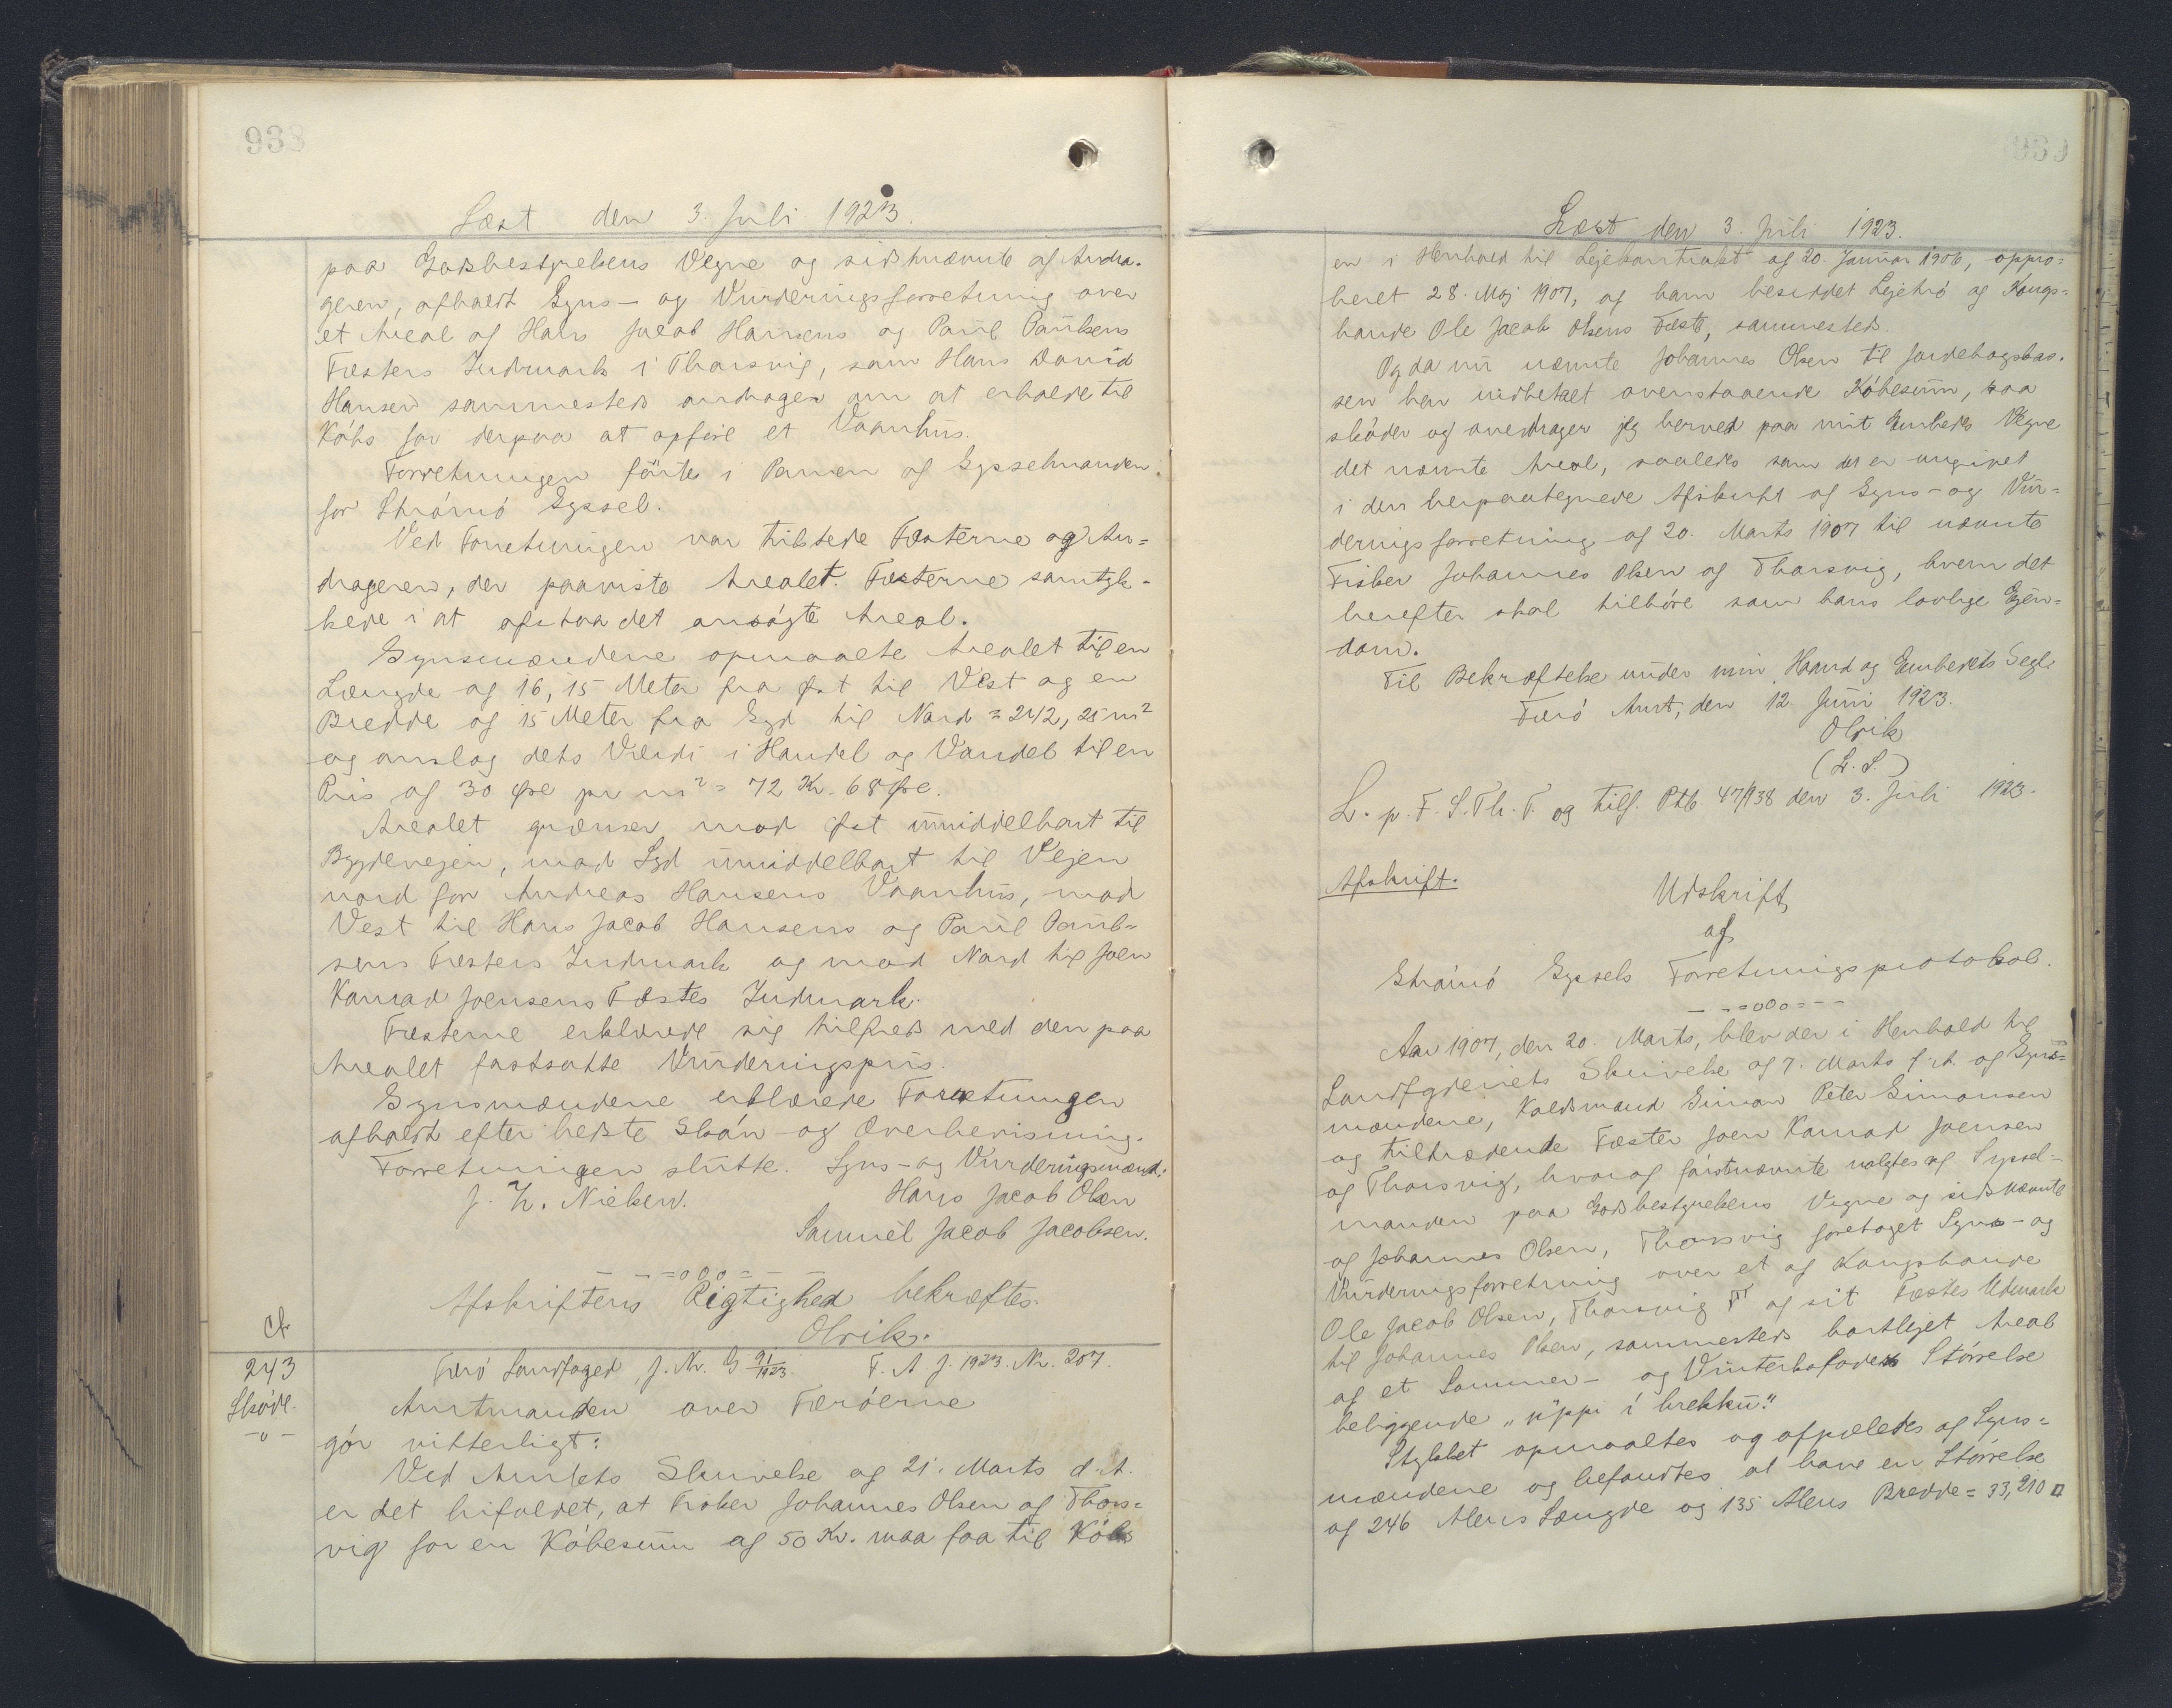 938
Læst den 3. Juli 1923.
paa Godsbestyrelsens Vegne og sidstnævnte af Andra-
geren, afholdt Syns- og Vurderingsforretning over
et Areal af Hans Jacob Hansens og Paul Paulsens
Fæsters Indmark i Thorsvig, som Hans David
Hansen sammesteds andrager om at erholde til
Købs for derpaa at opføre et Vaanhus.
Forretningen førtes i Pennen af Sysselmanden
for Strømø Syssel.
Ved Forretningen var tilstede Fæsterne og An-
drageren, der paaviste Arealet. Fæsterne samtyk-
kede i at afstaa det ansøgte Areal.
Synsmændene opmaalte Arealet til en
Længde af 16,15 Meter fra Øst til Vest og en
Bredde af 15 Meter fra Syd til Nord = 242,25 m²
og anslog dets Værdi i Handel og Vandel til en
Pris af 30 Øre pr m² = 72 Kr. 68 Øre.
Arealet grænser mod Øst umiddelbart til
Bygdevejen, mod Syd umiddelbart til Vejen
nord for Andreas Hansens Vaanhus, mod
Vest til Hans Jacob Hansens og Paul Paul-
sens Fæsters Indmark og mod Nord til Joen
Konrad Joensens Fæstes Indmark.
Fæsterne erklærede sig tilfreds med den paa
Arealet fastsatte Vurderingspris.
Synsmændene erklærede Forretningen
afholdt efter bedste Skøn og Overbevisning.
Forretningen sluttet. Syns- og Vurderingsmænd:
J. H. Nielsen. Hans Jacob Olsen
Samuel Jacob Jacobsen.
- - =ooo= - -
Afskriftens Rigtighed bekræftes.
Olrik.
cf.
243
Skøde.
-"-
Færø Landfoged J. Nr. G 91/1923. F. A. J. 1923. Nr. 207.
Amtmanden over Færøerne
gør vitterligt:
Ved Amtets Skrivelse af 21. Marts d. A.
er det bifaldet, at Fisker Johannes Olsen af Thors-
vig for en Købesum af 50 Kr. maa faa til Købs
939
Læst den 3. Juli 1923.
en i Henhold til Lejekontrakt af 20. Januar 1906, appro-
beret 28. Maj 1907, af ham besiddet Lejetrø af Kongs-
bonde Ole Jacob Olsens Fæste, sammesteds.
Og da nu nævnte Johannes Olsen til Jordebogskas-
sen har indbetalt ovenstaaende Købesum, saa
skøder og overdrager jeg herved paa mit Embeds Vegne
det nævnte Areal, saaledes som det er angivet
i den herpaategnede Afskrift af Syns- og Vur-
deringsforretning af 20. Marts 1907 til nævnte
Fisker Johannes Olsen af Thorsvig, hvem det
herefter skal tilhøre som hans lovlige Ejen-
dom.
Til Bekræftelse under min Haand og Embedets Segl.
Færø Amt, den 12. Juni 1923.
Olrik
(L. S.)
L. p. F. S. Th. T. og tilf. Ptb. 47/938 den 3. Juli 1923.
Afskrift.
Udskrift
af
Strømø Syssels Forretningsprotokol.
- - =ooo= - -
Aar 1907, den 20. Marts, blev der i Henhold til
Landfogderiets Skrivelse af 7. Marts f. A. af Syns-
mændene, Kaldsmand Simon Peter Simonsen
og tiltrædende Fæster Joen Konrad Joensen
af Thorsvig, hvoraf førstnævnte valgtes af Syssel-
manden paa Godsbestyrelsens Vegne og sidstnævnte
af Johannes Olsen, Thorsvig foretaget Syns- og
Vurderingsforretning over et af Kongsbonde
Ole Jacob Olsen, Thorsvig af sit Fæstes Udmark
til Johannes Olsen, sammesteds bortlejet Areal
af et Sommer- og Vinterkofoders Størrelse
beliggende "uppi i brekku".
Stykket opmaaltes og afpæledes af Syns-
mændene og befandtes at have en Størrelse
af 246 Alens Længde og 135 Alens Bredde = 33,210 □